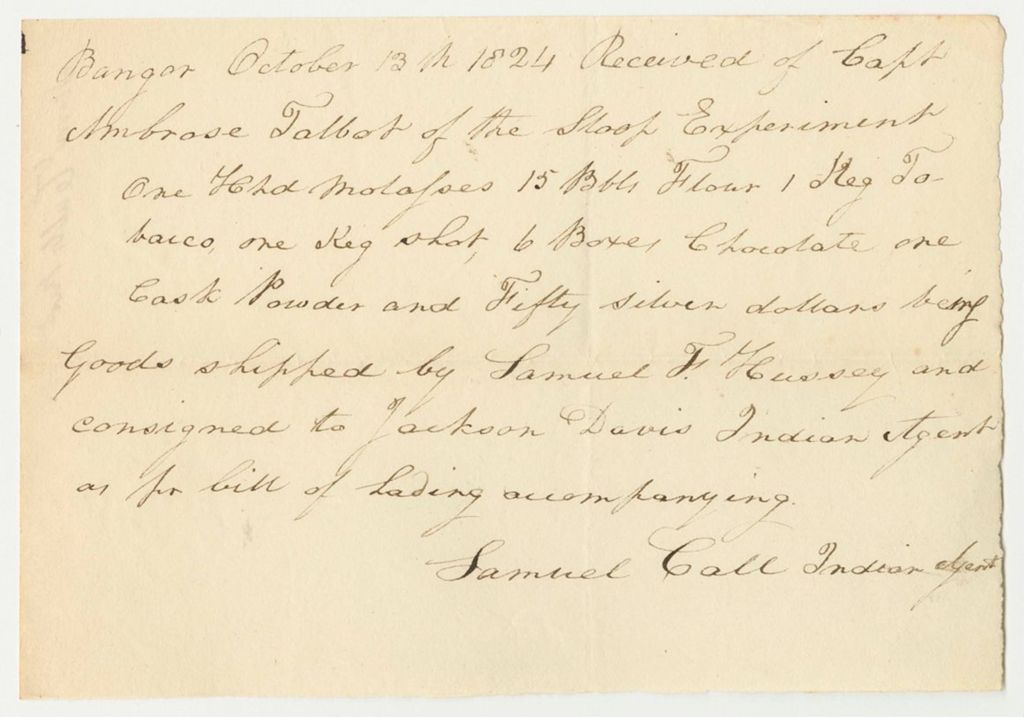 Bangor October 13th 1824 Received of Capt
Ambrose Talbot of the Sloop Experiment
One Hhd Molasses 15 Bbls Flour 1 Keg To-
bacco, one Keg shot, 6 Boxes Chocolate one
Cask Powder and Fifty silver dollars being
Goods shipped by Samuel F. Hussey and
consigned to Jackson Davis Indian Agent
as pr bill of Lading accompanying.
Samuel Call Indian Agent